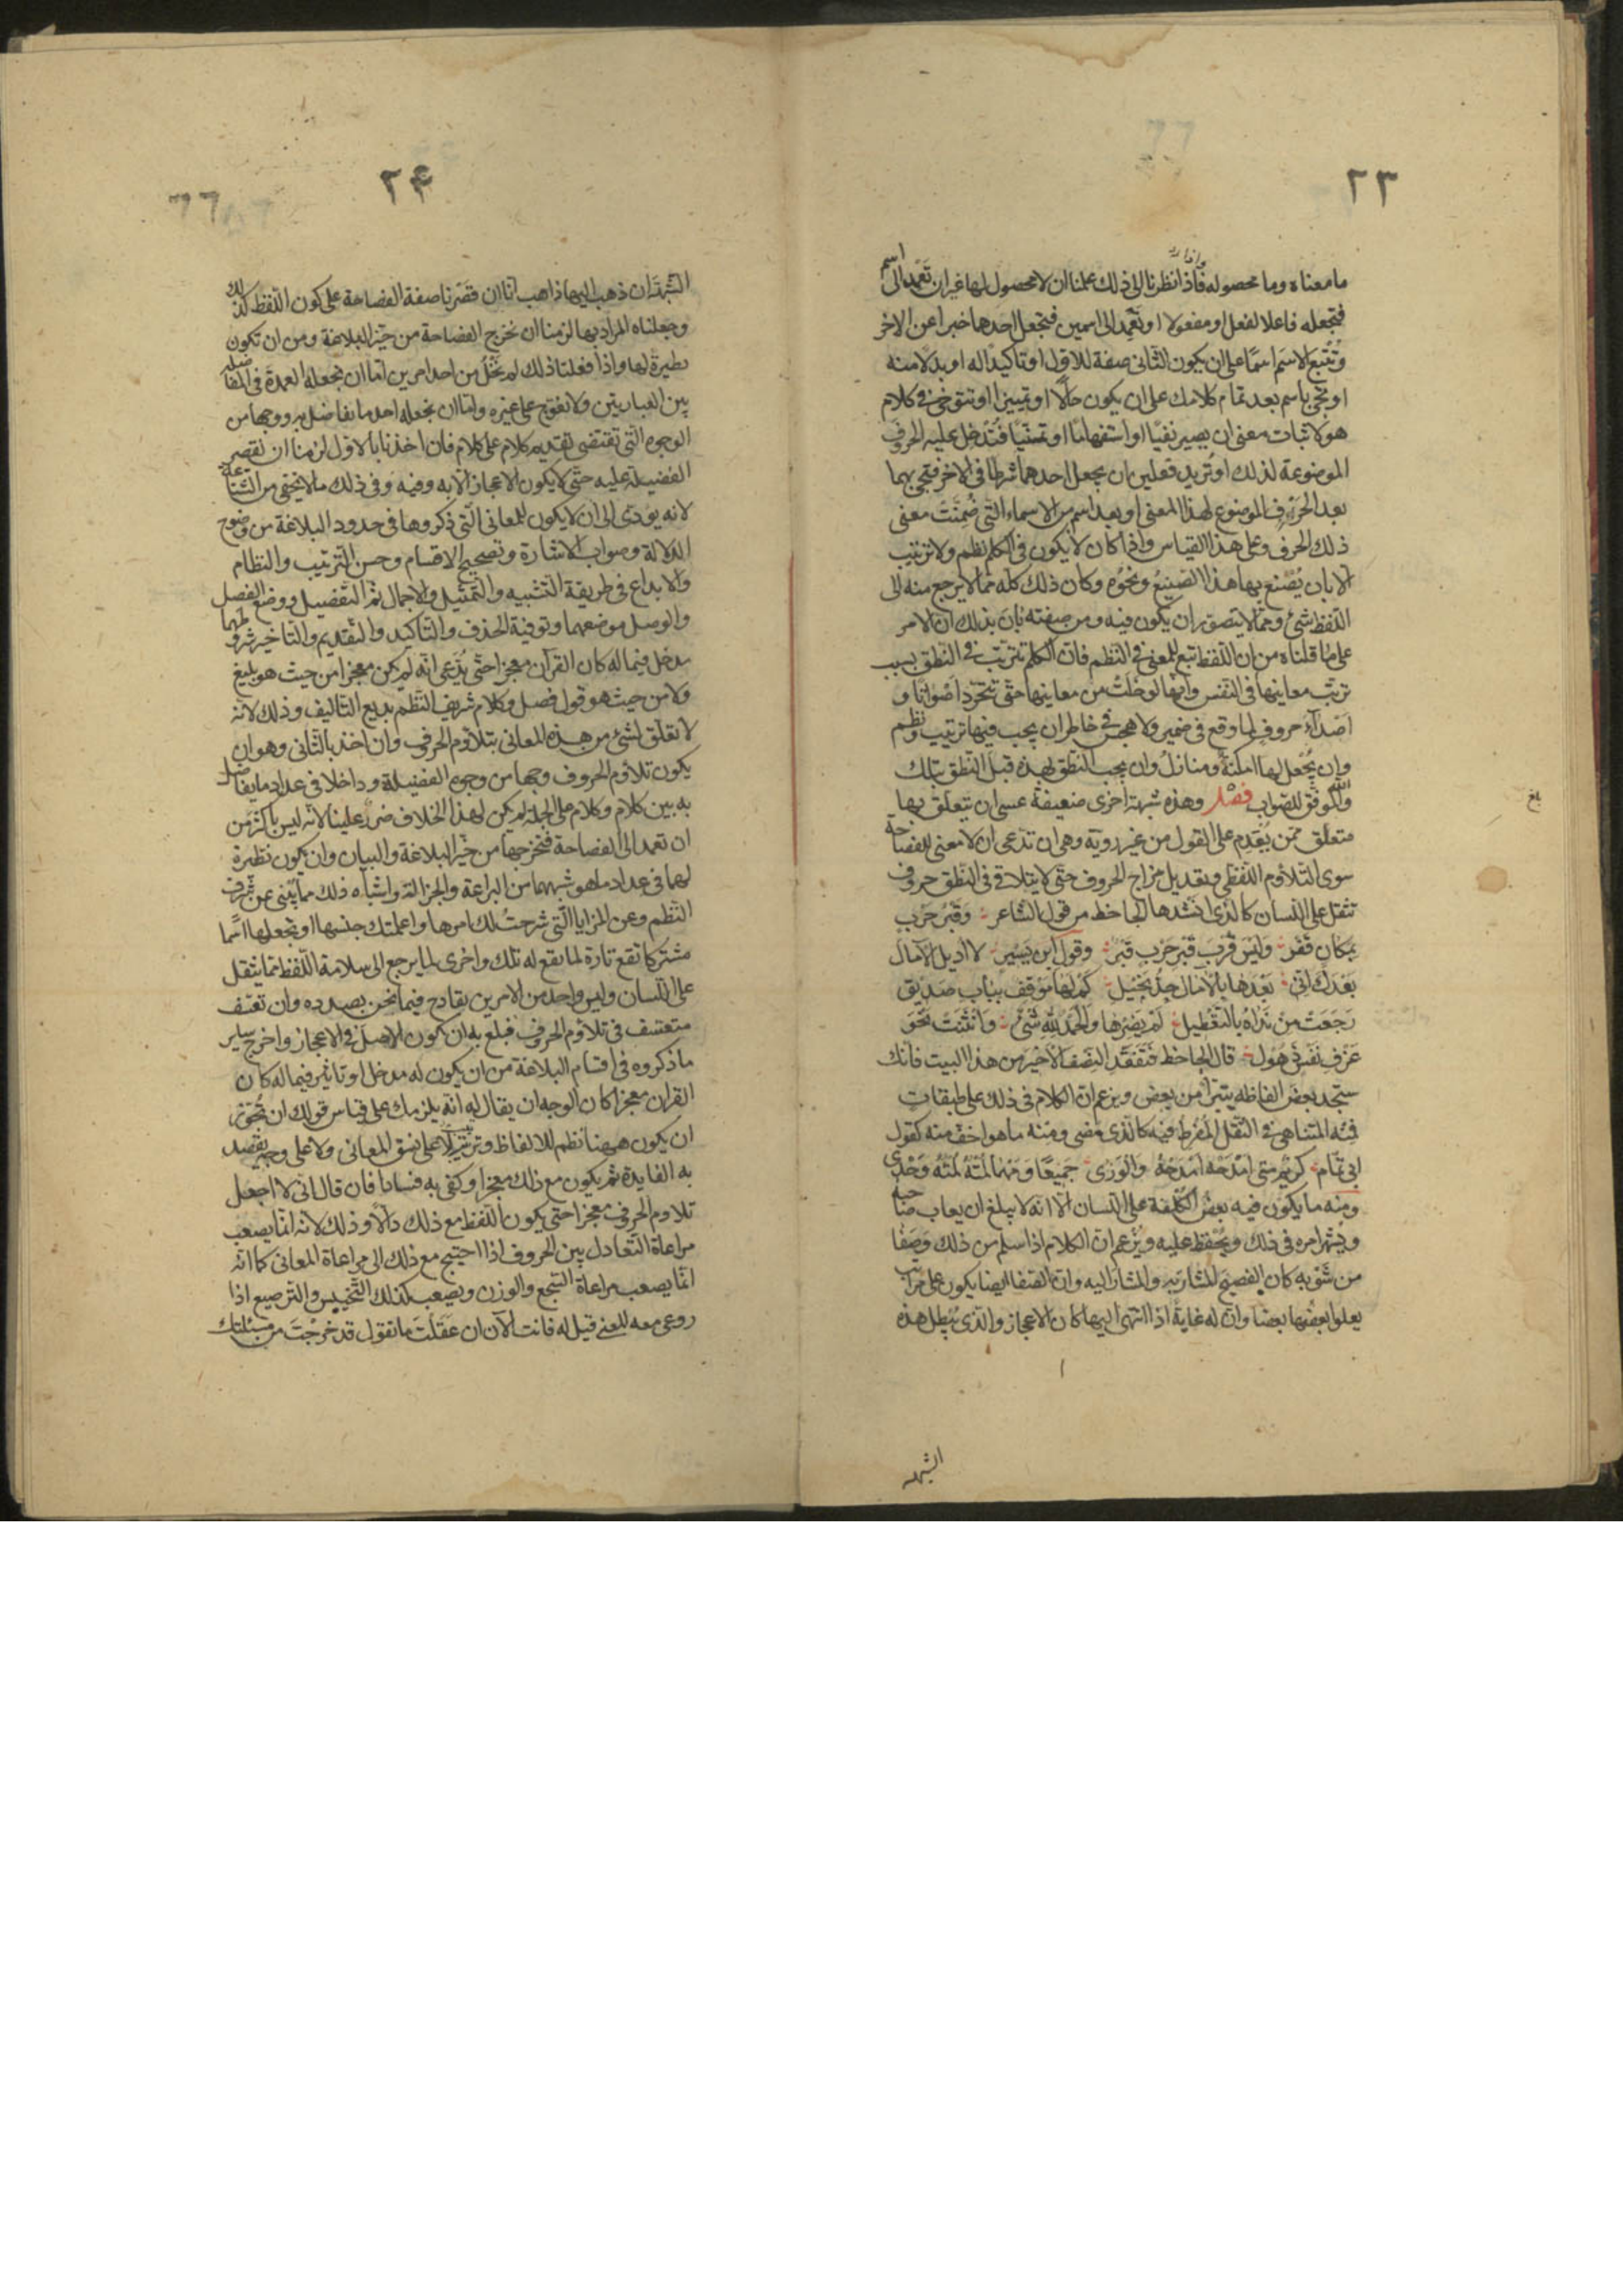 ٢٣
وإذا
ما معناه وما محصوله فاذا نظرنا الى ذلك علمنا ان لا محصول لها غير ان تعمد الى اسم
فتجعله فاعلا لفعل او مفعولا او تعمد الى اسمين فتجعل احدهما خبرا عن الاخر
وتُتبع الاسم اسمًا على ان يكون الثانى صفة للاول او تاكيدًا له او بدلا منه
او تجئ باسم بعد تمام كلامك على ان يكون حالًا او تمييزا او تتوخى فى كلام
هو لاثبات معنى ان يصير نفيًا او استفهامًا او تمنّيًا فتُدخل عليه الحروف
الموضوعة لذلك او تُريد فعلين ان يجعل احدهما شرطا فى الاخر فتجئ بهما
بعد الحرف الموضوع لهذا المعنى او بعد اسم من الاسماء التى ضُمّنَت معنى
ذلك الحرف وعلى هذا القياس واذا كان لا يكون فى الكلم نظم ولا ترتيب
الا بان يُصْنع بها هذا الصنيعُ ونحوُه وكان ذلك كله مما لا يرجع منه الى
اللفظ شئ ومما لا يتصوّر ان يكون فيه ومن صفته بان بذلك ان الامر
على ما قلناه من ان اللفظ تبع للمعنى فى النظم فان الكلم تترتب فى النطق بسبب
ترتب معانيها فى النفس وانها لو خَلَتْ من معانيها حتى تتجرّد اَصْواتا و
اصداءَ حروفٍ لما وقع فى ضمير ولا هجس فى خاطر ان يجب فيها ترتيب ونظم
وان يُجْعل لها امكنةٌ ومنازلُ وان يجب النطق بهذه قبل النطق بتلك
والله الموفق للصواب فصل وهذه شبهة اخرى ضعيفة عسى ان يتعلق بها
بلغ
متعلق ممّن يُقدِم على القول من غير روية وهى ان تدّعى ان لا معنى للفصاحة
سوى التلاؤم اللفظى وتعديل مزاج الحروف حتى لا يتلاقى فى النطق حروف
تثقل على اللسان كالذى انشدها الجاحظ من قول الشاعر وَقَبْرُ حَرْبٍ
بمكان قفر وَلَيْسَ قُرْبَ قَبْرِ حَرْبٍ قَبْرُ وقول ابن يَسِير لا اُذيل الآمال
بَعْدَك انى بَعْدَها بالآمال جدُّ بخيل كَمْ لها مَوْقف بباب صَديق
رَجَعَتْ مِنْ نَدَاهُ بالتَّعْطيل لَمْ يَضِرْها وَالحَمْدُ للهِ شئ وَانْثَنَتْ نَحْوَ
عَزْفِ نَفْسٍ ذَهُولِ قال الجاحظ فتفَقّدِ النصف الاخير من هذا البيت فانك
ستجد بعضَ الفاظه يتبرّأ من بعض ويزعم ان الكلام فى ذلك على طبقات
فمنه المتناهى فى الثقل المُفرِط فيه كالذى مضى ومنه ما هو اخفّ منه كقول
ابى تمام كَريْم متى اَمْدَحْهُ اَمْدَحْهُ وَالْوَرَى جَمِيعًا وَمَهْما لُمْتُهُ لُمْتُه وَحْدى
ومنه ما يكون فيه بعضُ الكلفة على اللسان الا انه لا يبلغ ان يعاب صاحبه
ويُشْهر امره فى ذلك ويُحْفظ عليه ويَزْعم ان الكلام اذا سلم من ذلك وَصَفا
من شَوْبه كان الفصيح المشاد به والمشار اليه وان الصفا ايضا يكون على مراتب
يعلو بعضُها بعضا وان له غايةً اذا انتهى اليها كان الاعجاز والذى يُبطِل هذه
الشبهة
٢۴
66
الشبهةَ ان ذهب اليها ذاهب انا ان قصَرنا صفة الفصاحة على كون اللفظ كذلك
وجعلناه المراد بها لزمنا ان نخرج الفصاحة من حيّز البلاغة ومن ان تكون
نظيرة لها واذا فعلنا ذلك لم نَخْلُ من احد امرين اما ان نجعله العمدة فى المفاضلة
بين العبارتين ولا نعرّج على غيره واما ان نجعله احد ما نفاضل به ووجها من
الوجوه التى تقتضى تقديم كلام على كلام فان اخذنا بالاول لزمنا ان نقصر
الفضيلة عليه حتى لا يكون الاعجاز الا به وفيه وفى ذلك ما لا يخفى من الشناعة
لانه يؤدّى الى ان لا يكون للمعانى التى ذكروها فى حدود البلاغة من وضوح
الدلالة وصواب الاشارة وتصحيح الاقسام وحسن الترتيب والنظام
والابداع فى طريقة التشبيه والتمثيل والاجمال ثم التفصيل ووضع الفصل
والوصل موضعهما وتوفية الحذف والتاكيد والتقديم والتاخير شروطهما
مدخل فيما له كان القرآن معجزا حتى يُدّعى انه لم يكن معجزا من حيث هو بليغ
ولا من حيث هو قول فصل وكلام شريف النظم بديع التاليف وذلك لانه
لا تعلّق لشئ من هذه المعانى بتلاؤم الحروف وان اخذ بالثانى وهو ان
يكون تلاؤم الحروف وجها من وجوه الفضيلة وداخلا فى عداد ما يفاضل
به بين كلام وكلام على الجملة لم يكن لهذا الخلاف ضرر علينا لانه ليس باكثر من
ان تعمد الى الفصاحة فتخرجها من حيّز البلاغة والبيان وان يكون نظيرة
لهما فى عداد ما هو شبههما من البراعة والجزالة واشباه ذلك مما يُنبئ عن شرف
النظم وعن المزايا التى شرحتُ لك امرها واعلمتك جنسها او تجعلها اسْما
مشتركا تقع تارة لما تقع له تلك واخرى لما يرجع الى سلامة اللفظ مما يثقل
على اللسان وليس واحد من الامرين بقادح فيما نحن بصدده وان تعسّف
متعسف فى تلاؤم الحروف فبلغ به ان يكون الاصل فى الاعجاز واخرج ساير
ما ذكروه فى اقسام البلاغة من ان يكون له مدخل او تاثير فيما له كان
القران معجزا كان الوجه ان يقال له انه يلزمك على قياس قولك ان تُجَوّز
ان يكون ههنا نظم للالفاظ وترتيب لا على نسق المعانى ولا على وجه يقصد
به الفايدة ثم يكون مع ذلك معجزا وكفى به فسادا فان قال انى لا اجعل
تلاوم الحروف معجزا حتى يكون اللفظ مع ذلك دالّا وذلك لانه انما يصعب
مراعاة التعادل بين الحروف اذا احتيج مع ذلك الى مراعاة المعانى كما انه
انما يصعب مراعاة السّجع والوزن ويصعب كذلك التجنيس والترصيع اذا
روعى معه المعنى قيل له فانت الآن ان عَقَلْتَ ما تقول قد خرجْتَ من مسئلتك